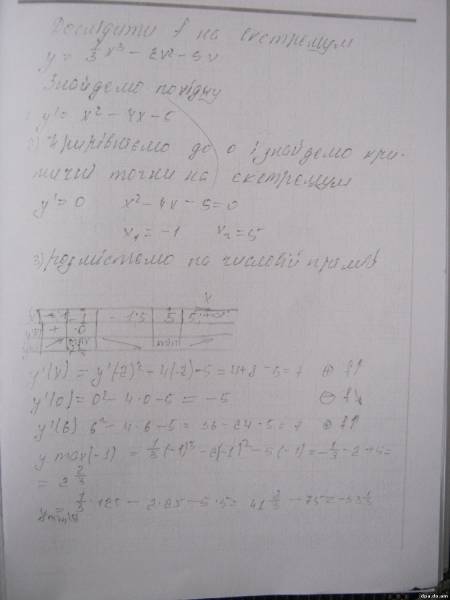 Дослідити f на екстремум
y = 1/3 x³ − 2x² − 5x
Знайдемо похідну
y' = x² − 4x − 5
2) Прирівняємо до 0 і знайдемо кри-
тичні точки на екстремум
y' = 0 x² − 4x − 5 = 0
x₁ = −1 x₂ = 5
3) розмістемо на числовій прямій
x
-1 -1;5 5
+ 0
max min
y'(x) = y'(-2)² + 4(-2) - 5 = 4 + 8 - 5 = 7 ⊕ f↑
y'(0) = 0² − 4·0 − 5 = −5 ⊖ f↓
y'(6) 6² − 4·6 − 5 = 36 − 24 − 5 = 7 ⊕ f↑
y max(-1) = 1/3 (-1)³ − 2(-1)² − 5(-1) = −1/3 − 2 + 5 =
= 2 2/3
y min(5) = 1/3 · 125 − 2·25 − 5·5 = 41 2/3 − 75 = −33 1/3
dpa.do.am